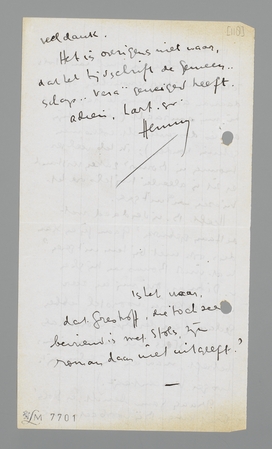 veel dank.
Het is overigens niet waar,
dat het tijdschrift de Gemeen-
schap "Vera" geweigerd heeft.
adieu, hart. gr.
Henny
Is het waar,
dat Greshoff, die toch zeer
bevriend is met Stols, zijn
roman daar niet uitgeeft?
LM 7701